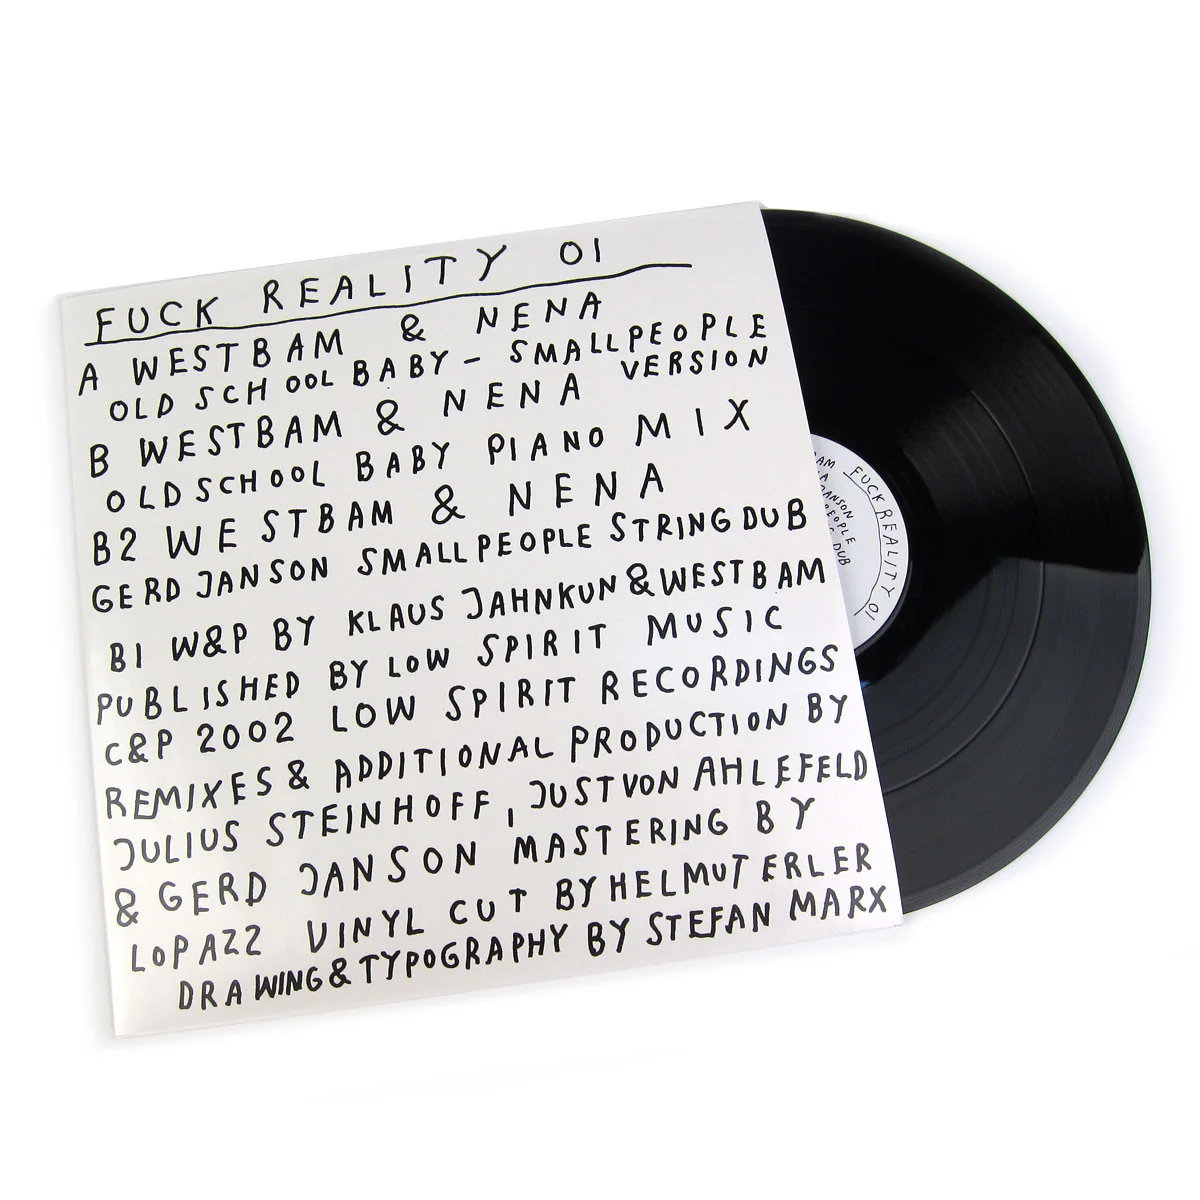 FUCK REALITY 01
A WESTBAM & NENA
OLD SCHOOL BABY - SMALLPEOPLE
VERSION
B WESTBAM & NENA
OLDSCHOOL BABY PIANO MIX
B2 WESTBAM & NENA
GERD JANSON SMALLPEOPLE STRING DUB
B1 W&P BY KLAUS JAHNKUN & WESTBAM
PUBLISHED BY LOW SPIRIT MUSIC
C&P 2002 LOW SPIRIT RECORDINGS
REMIXES & ADDITIONAL PRODUCTION BY
JULIUS STEINHOFF, JUST VON AHLEFELD
& GERD JANSON MASTERING BY
LOPAZZ VINYL CUT BY HELMUT ERLER
DRAWING & TYPOGRAPHY BY STEFAN MARX
FUCK REALITY 01
AM
JANSON
PEOPLE
DUB